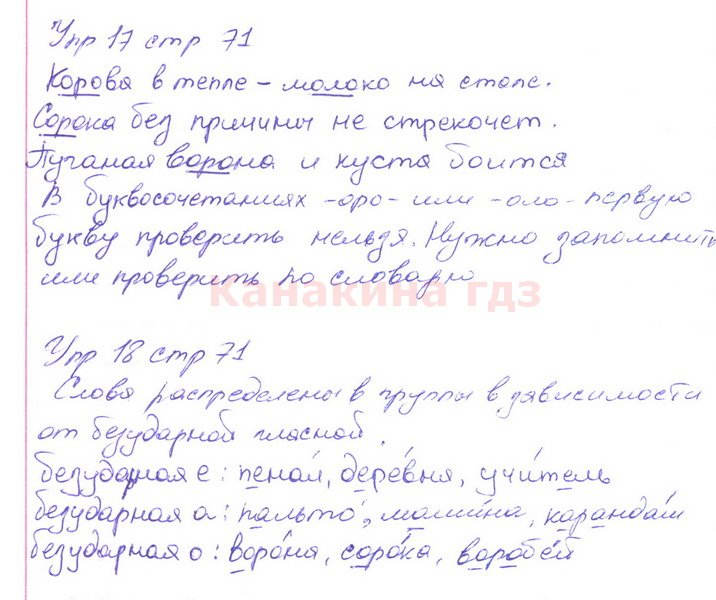 Упр 17 стр 71
Корова в тепле - молоко на столе.
Сорока без причины не стрекочет.
Пуганая ворона и куста боится
В буквосочетаниях -оро- или -оло- первую
букву проверить нельзя. Нужно запомнить
или проверить по словарю
Канакина гдз
Упр 18 стр 71
Слова распределены в группы в зависимости
от безударной гласной.
безударная е: пенал, дере́вня, учи́тель
безударная а: пальто́, маши́на, каранда́ш
безударная о: воро́на, соро́ка, воробе́й